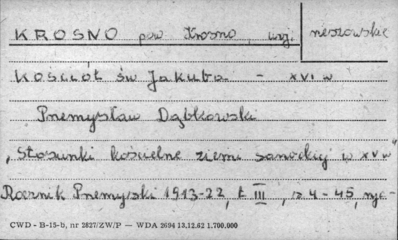 KROSNO pow. Krosno, woj. rzeszowskie
Kościół św Jakuba - XVI w
Przemysław Dąbkowski
"Stosunki kościelne ziemi sanockiej w XV w"
Rocznik Przemyski 1913-22, t III, s 4-45, ryc-
CWD - B-15-b, nr 2827/ZW/P — WDA 2694 13.12.62 1.700.000